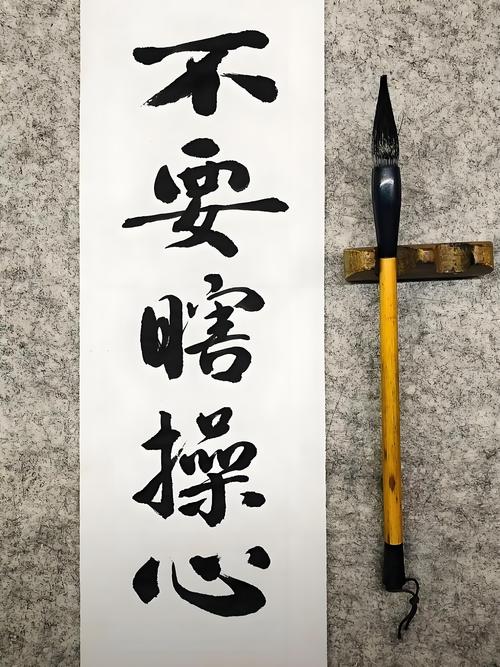 不要瞎操心